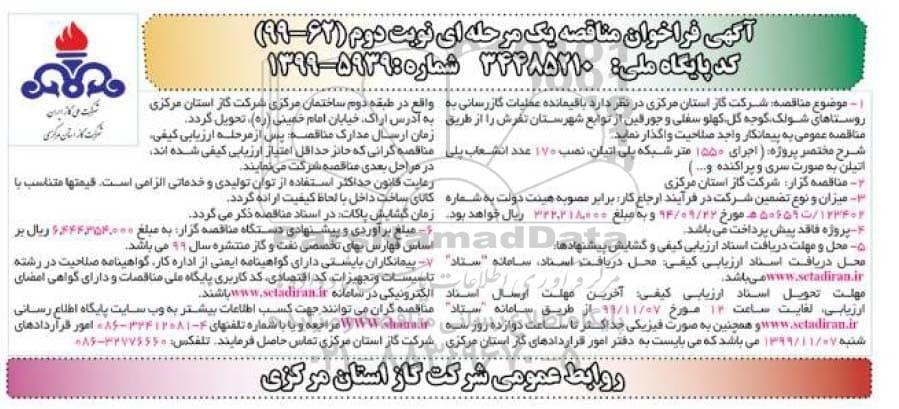 آگهی فراخوان مناقصه یک مرحله ای نوبت دوم (۶۲-۹۹)
کد پایگاه ملی: ۳۴۴۸۵۲۱۰ شماره :۵۹۳۹-۱۳۹۹
شرکت ملی گاز ایران
شرکت گاز استان مرکزی
۱- موضوع مناقصه: شرکت گاز استان مرکزی در نظر دارد باقیمانده عملیات گازرسانی به
روستاهای شولک،گوجه گل،کهلو سفلی و جورقین از توابع شهرستان تفرش را از طریق
مناقصه عمومی به پیمانکار واجد صلاحیت واگذار نماید.
شرح مختصر پروژه: ( اجرای ۱۵۵۰ متر شبکه پلی اتیلن، نصب ۱۷۰ عدد انشعاب پلی
اتیلن به صورت سری و پراکنده و... )
۲- مناقصه گزار: شرکت گاز استان مرکزی
۳- میزان و نوع تضمین شرکت در فرآیند ارجاع کار: برابر مصوبه هیئت دولت به شماره
۱۲۳۴۰۲/ت۵۰۶۵۹ هـ مورخ ۹۴/۰۹/۲۲ و به مبلغ ۳۲۲,۲۱۸,۰۰۰ ریال خواهد بود.
۴- پروژه فاقد پیش پرداخت می باشد.
۵- محل و مهلت دریافت اسناد ارزیابی کیفی و گشایش پیشنهادها:
محل دریافت اسناد ارزیابی کیفی: محل دریافت اسناد، سامانه "ستاد"
www.setadiran.ir می‌باشد.
مهلت تحویل اسناد ارزیابی کیفی: آخرین مهلت ارسال اسناد
ارزیابی، لغایت ساعت ۱۲ مورخ ۹۹/۱۱/۰۷ از طریق سامانه "ستاد"
www.setadiran.ir و همچنین به صورت فیزیکی حداکثر تا ساعت دوازده روز سه
شنبه ۱۳۹۹/۱۱/۰۷ می باشد که می بایست به دفتر امور قراردادهای گاز استان مرکزی
واقع در طبقه دوم ساختمان مرکزی شرکت گاز استان مرکزی
به آدرس اراک، خیابان امام خمینی (ره)، تحویل گردد.
زمان ارسال مدارک مناقصه: پس ازمرحله ارزیابی کیفی،
مناقصه گرانی که حائز حداقل امتیاز ارزیابی کیفی شده اند،
در مراحل بعدی مناقصه شرکت می‌نمایند.
رعایت قانون حداکثر استفاده از توان تولیدی و خدماتی الزامی است. قیمتها متناسب با
کالای ساخت داخل با لحاظ کیفیت ارائه گردد.
زمان گشایش پاکات: در اسناد مناقصه ذکر می گردد.
۶- مبلغ برآوردی و پیشنهادی دستگاه مناقصه گزار: به مبلغ ۶,۴۴۴,۳۵۴,۰۰۰ ریال بر
اساس فهارس بهای تخصصی نفت و گاز منتشره سال ۹۹ می باشد.
۷- پیمانکاران بایستی دارای گواهینامه ایمنی از اداره کار، گواهینامه صلاحیت در رشته
تاسیسات وتجهیزات، کد اقتصادی، کد کاربری پایگاه ملی مناقصات و دارای گواهی امضای
الکترونیکی در سامانه www.setadiran.ir باشند.
مناقصه گران می توانند جهت کسب اطلاعات بیشتر به وب سایت پایگاه اطلاع رسانی
WWW.shana.ir مراجعه و یا با شماره تلفنهای ۴-۳۳۴۱۲۰۸۱-۰۸۶ امور قراردادهای
شرکت گاز استان مرکزی تماس حاصل فرمایند. تلفکس: ۳۲۷۷۶۶۶۰-۰۸۶
روابط عمومی شرکت گاز استان مرکزی
۰۲۱-۸۸۳۴۹۶۷۰-۵